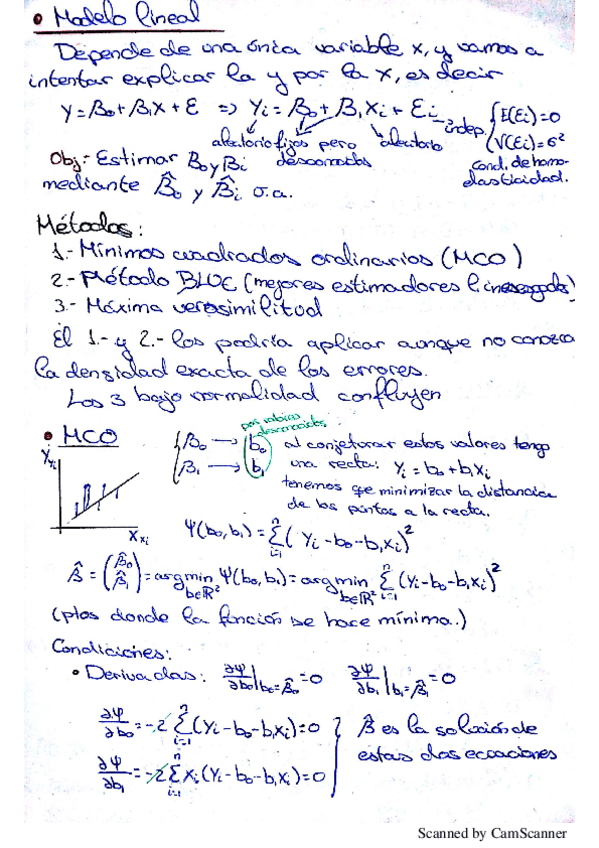 • Modelo lineal
Depende de una única variable x, y vamos a
intentar explicar la y por la x, es decir
y = β₀ + β₁x + ε ⇒ yᵢ = β₀ + β₁xᵢ + εᵢ → indep. { E(εᵢ)=0
V(εᵢ)=σ²
aleatorio fijos pero desconocidos aleatorio
Cond. de homo-
dasticidad.
Obj.- Estimar β₀ y βᵢ
mediante β̂₀ y β̂ᵢ
Métodos:
1.- Mínimos cuadrados ordinarios (MCO)
2.- Método BLUE (mejores estimadores lin. insesgados)
3.- Máxima verosimilitud
El 1.- y 2.- los podría aplicar aunque no conozca
la densidad exacta de los errores.
Los 3 bajo normalidad confluyen
• MCO
desconocidos
{ β₀ → b₀
β₁ → b₁
al conjeturar estos valores tengo
una recta: yᵢ = b₀ + b₁xᵢ
tenemos que minimizar la distancia
de los puntos a la recta.
Y yᵢ
X xᵢ
Ψ(b₀,b₁) = Σⁿᵢ₌₁ (yᵢ - b₀ - b₁xᵢ)²
β̂ = (β̂₀ β̂₁) = argmin b∈ℝ² Ψ(b₀,b₁) = argmin b∈ℝ² Σⁿᵢ₌₁ (yᵢ - b₀ - b₁xᵢ)²
(ptos donde la función se hace mínima.)
Condiciones:
• Derivadas: ∂Ψ/∂b₀ |b₀=β̂₀ = 0 ∂Ψ/∂b₁ |b₁=β̂₁ = 0
∂Ψ/∂b₀ = -2 Σⁿᵢ₌₁ (yᵢ - b₀ - b₁xᵢ) = 0
∂Ψ/∂b₁ = -2 Σⁿᵢ₌₁ xᵢ(yᵢ - b₀ - b₁xᵢ) = 0
} β̂ es la solución de
estas dos ecuaciones
Scanned by CamScanner